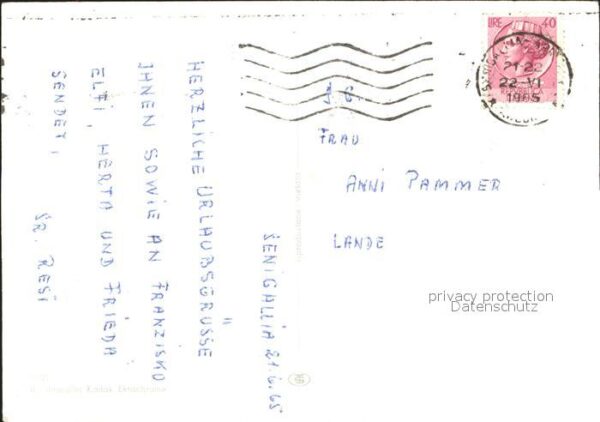 LIRE 40
21-22
22.VI
1965
FRAU
ANNI PAMMER
LANDE
privacy protection
Datenschutz
SENIGALLIA 21.6.65
HERZLICHE URLAUBSGRÜSSE
IHNEN SOWIE AN FRANZISKO
ELFI, HERTA UND FRIEDA
SENDET,
SR. RESI